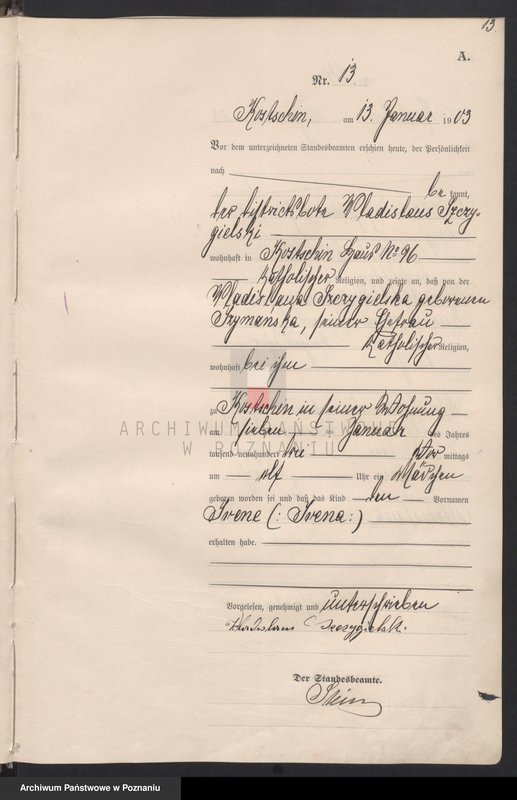 13.
A.
Nr. 13
Kostschin, am 13. Januar 1903
Vor dem unterzeichneten Standesbeamten erschien heute, der Persönlichkeit
nach be kannt,
der Distriktsbote Wladislaus Szczy-
gielski
wohnhaft in Kostschin Haus No 96
katholischer Religion, und zeigte an, daß von der
Wladislawa Szczygielska geborenen
Szymanska, seiner Ehefrau
katholischer Religion,
wohnhaft bei ihm
zu Kostschin in seiner Wohnung
am sieben ten Januar des Jahres
tausend neunhundert drei Vor mittags
um elf Uhr ein Mädchen
geboren worden sei und daß das Kind den Vornamen
Irene (: Irena :)
erhalten habe.
Vorgelesen, genehmigt und unterschrieben
Wladislaus Szczygielski.
Der Standesbeamte.
ARCHIWUM PAŃSTWOWE
W POZNANIU
Archiwum Państwowe w Poznaniu